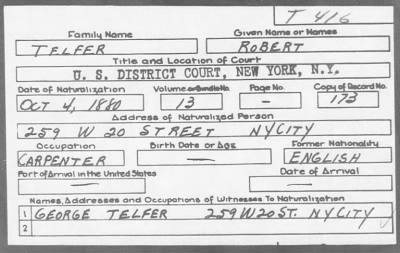 T 416
Family Name Given Name or Names
TELFER ROBERT
Title and Location of Court
U. S. DISTRICT COURT, NEW YORK, N.Y.
Date of Naturalization Volume or Bundle No. Page No. Copy of Record No.
OCT 4, 1880 13 — 173
Address of Naturalized Person
259 W 20 STREET NYCITY
Occupation Birth Date or Age Former Nationality
CARPENTER — ENGLISH
Port of Arrival in the United States Date of Arrival
— —
Names, Addresses and Occupations of Witnesses To Naturalization
1 GEORGE TELFER 259 W 20 ST. NYCITY
2